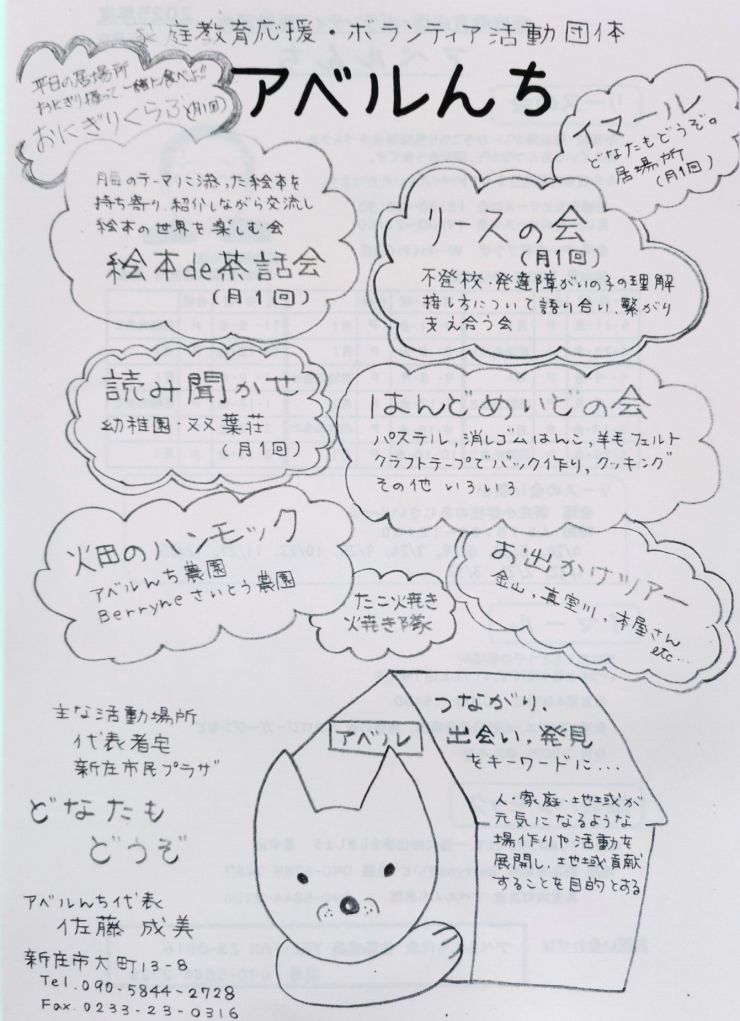 家庭教育応援・ボランティア活動団体
アベルんち
平日の居場所
おにぎり握って一緒に食べよ!!
おにぎりくらぶ(月1回)
イマール
どなたもどうぞ。
居場所
(月1回)
月毎のテーマに添った絵本を
持ち寄り、紹介しながら交流し
絵本の世界を楽しむ会
絵本de茶話会
(月1回)
リースの会
(月1回)
不登校・発達障がいの子の理解
接し方について語り合い、繋がり
支え合う会
読み聞かせ
幼稚園・双葉荘
(月1回)
はんどめいどの会
パステル,消しゴムはんこ,羊毛フェルト
クラフトテープでバック作り,クッキング
その他 いろいろ
畑のハンモック
アベルんち農園
Berryneさいとう農園
たこ焼き
焼き隊
お出かけツアー
金山,真室川,本屋さん
etc...
主な活動場所
代表者宅
新庄市民プラザ
どなたも
どうぞ
アベルんち代表
佐藤 成美
新庄市大町13-9
Tel.090-5844-2728
Fax.0233-23-0316
アベル
つながり、
出会い、発見
をキーワードに...
人・家庭・地域が
元気になるような
場作りや活動を
展開し、地域貢献
することを目的とする